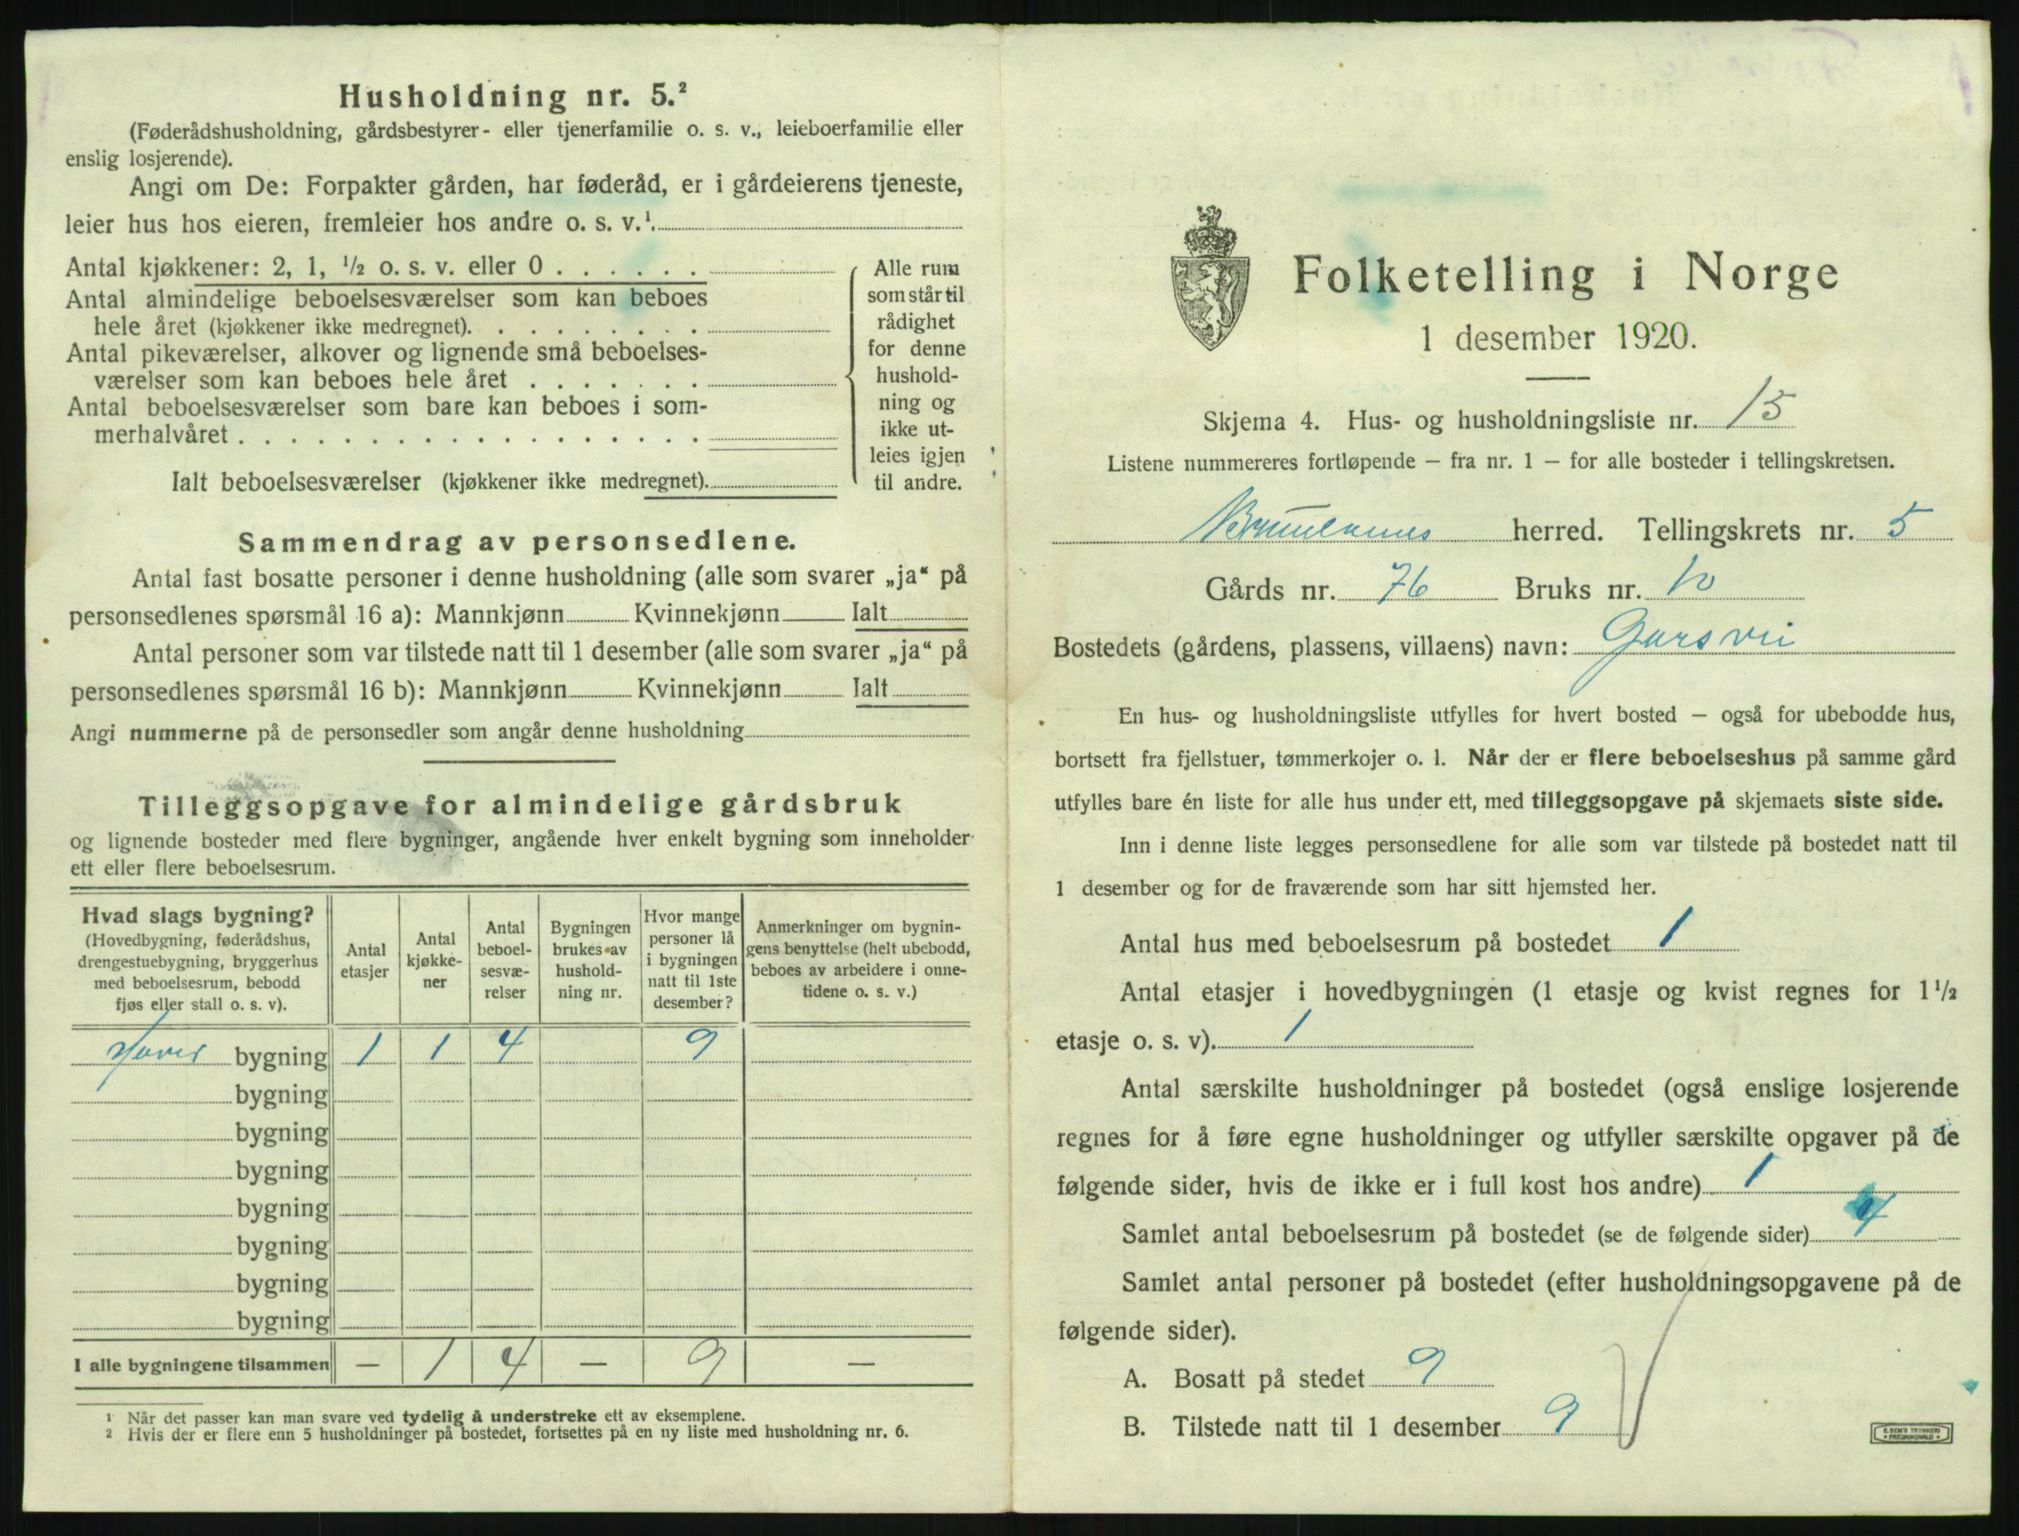 Husholdning nr. 5.²
(Føderådshusholdning, gårdsbestyrer- eller tjenerfamilie o. s. v., leieboerfamilie eller
enslig losjerende).
Angi om De: Forpakter gården, har føderåd, er i gårdeierens tjeneste,
leier hus hos eieren, fremleier hos andre o. s. v.¹
Antal kjøkkener: 2, 1, ½ o. s. v. eller 0 . . . . . .
Antal almindelige beboelsesværelser som kan beboes
hele året (kjøkkener ikke medregnet). . . . . . . . .
Antal pikeværelser, alkover og lignende små beboelses-
værelser som kan beboes hele året . . . . . . .
Antal beboelsesværelser som bare kan beboes i som-
merhalvåret . . . . . . . . . . . . . . . . . .
Ialt beboelsesværelser (kjøkkener ikke medregnet).
Alle rum
som står til
rådighet
for denne
hushold-
ning og
ikke ut-
leies igjen
til andre.
Sammendrag av personsedlene.
Antal fast bosatte personer i denne husholdning (alle som svarer „ja“ på
personsedlenes spørsmål 16 a): Mannkjønn Kvinnekjønn Ialt
Antal personer som var tilstede natt til 1 desember (alle som svarer „ja“ på
personsedlenes spørsmål 16 b): Mannkjønn Kvinnekjønn Ialt
Angi nummerne på de personsedler som angår denne husholdning
Tilleggsopgave for almindelige gårdsbruk
og lignende bosteder med flere bygninger, angående hver enkelt bygning som inneholder
ett eller flere beboelsesrum.
Hvad slags bygning?
(Hovedbygning, føderådshus,
drengestuebygning, bryggerhus
med beboelsesrum, bebodd
fjøs eller stall o. s. v).
Antal
etasjer
Antal
kjøkke-
ner
Antal
beboel-
sesvæ-
relser
Bygningen
brukes av
hushold-
ning nr.
Hvor mange
personer lå
i bygningen
natt til 1ste
desember?
Anmerkninger om bygnin-
gens benyttelse (helt ubebodd,
beboes av arbeidere i onne-
tidene o. s. v.)
bygning 1 1 4 9
bygning
bygning
bygning
bygning
bygning
bygning
bygning
I alle bygningene tilsammen — 1 4 — 9 —
¹ Når det passer kan man svare ved tydelig å understreke ett av eksemplene.
² Hvis der er flere enn 5 husholdninger på bostedet, fortsettes på en ny liste med husholdning nr. 6.
Folketelling i Norge
1 desember 1920.
Skjema 4. Hus- og husholdningsliste nr. 15
Listene nummereres fortløpende – fra nr. 1 – for alle bosteder i tellingskretsen.
herred. Tellingskrets nr. 5
Gårds nr. 76 Bruks nr. 10
Bostedets (gårdens, plassens, villaens) navn:
En hus- og husholdningsliste utfylles for hvert bosted – også for ubebodde hus,
bortsett fra fjellstuer, tømmerkojer o. l. Når der er flere beboelseshus på samme gård
utfylles bare én liste for alle hus under ett, med tilleggsopgave på skjemaets siste side.
Inn i denne liste legges personsedlene for alle som var tilstede på bostedet natt til
1 desember og for de fraværende som har sitt hjemsted her.
Antal hus med beboelsesrum på bostedet 1
Antal etasjer i hovedbygningen (1 etasje og kvist regnes for 1½
etasje o. s. v). 1
Antal særskilte husholdninger på bostedet (også enslige losjerende
regnes for å føre egne husholdninger og utfyller særskilte opgaver på de
følgende sider, hvis de ikke er i full kost hos andre) 1
Samlet antal beboelsesrum på bostedet (se de følgende sider) 4
Samlet antal personer på bostedet (efter husholdningsopgavene på de
følgende sider).
A. Bosatt på stedet 9
B. Tilstede natt til 1 desember 9